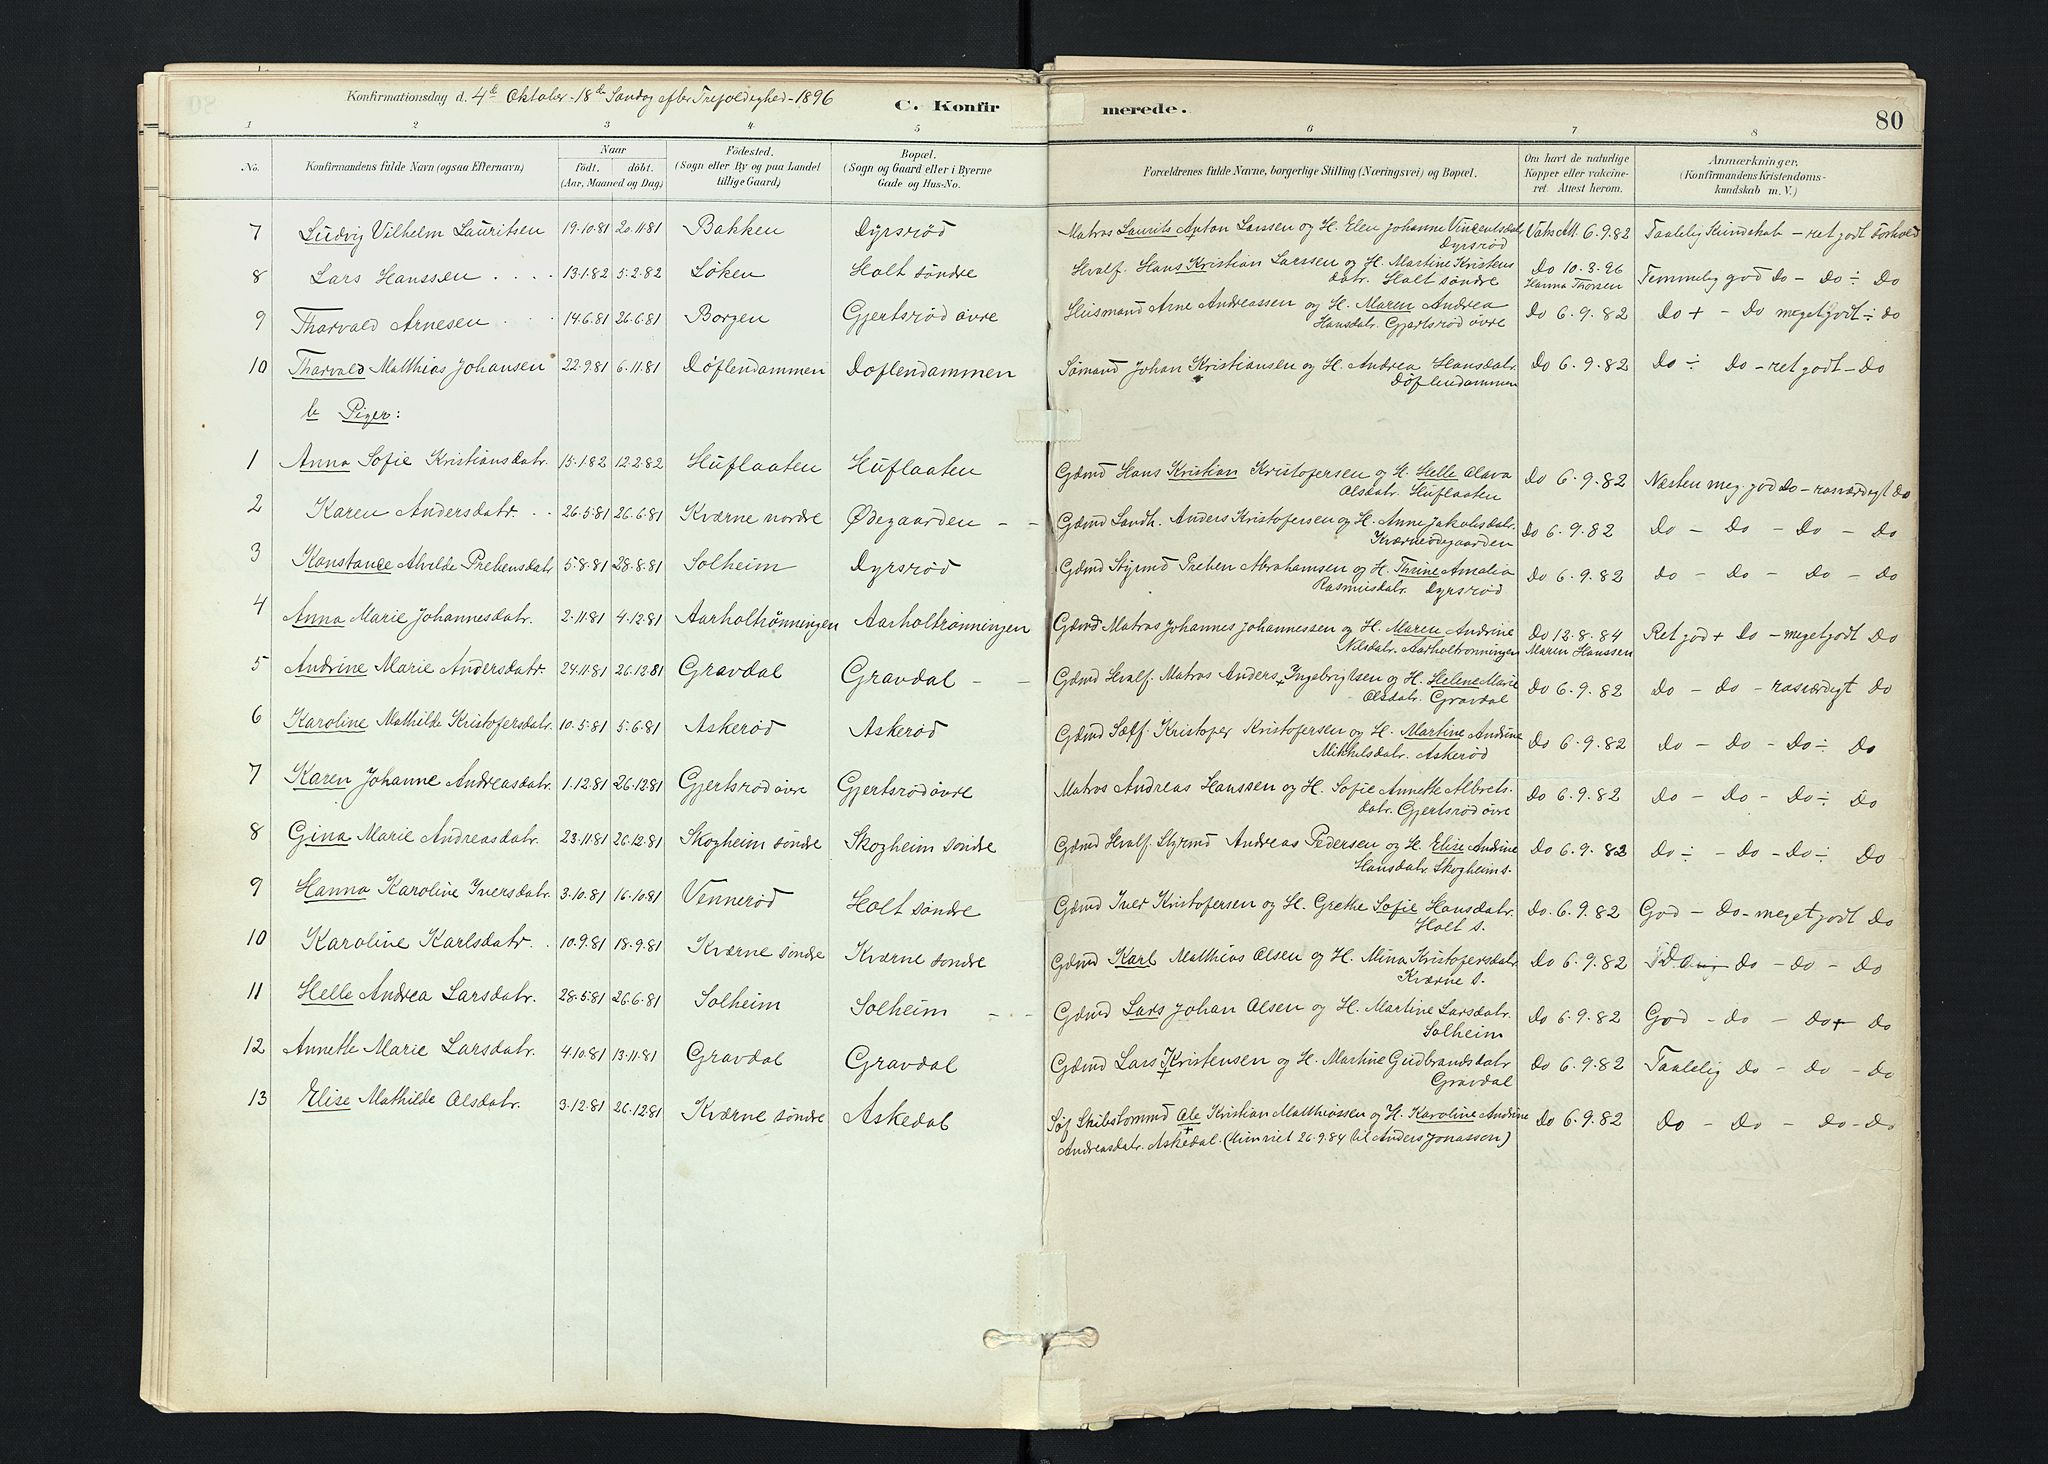 Konfirmationsdag d. 4de Oktober - 18de Søndag efter Trefoldighed - 1896
C. Konfir merede. 80
1 2 3 4 5 6 7 8
No. Konfirmandens fulde Navn (ogsaa Efternavn) Naar født. døbt. (Aar, Maaned og Dag) Fødested. (Sogn eller By og paa Landet tillige Gaard) Bopæl. (Sogn og Gaard eller i Byerne Gade og Hus-No. Forældrenes fulde Navne, borgerlige Stilling (Næringsvei) og Bopæl. Om havt de naturlige Kopper eller vakcineret. Attest herom. Anmærkninger, (Konfirmandens Kristendomskundskab m. V.)
7 Ludvig Vilhelm Lauritsen 19.10.81 20.11.81 Bakken Dyrsrød Matros Laurits Anton Larssen og H. Elen Johanne Vincentsdatr. Vaks Att. 6.9.82 Taalelig Kundskab - ret godt Forhold
Dyrsrød
8 Lars Hanssen 13.1.82 5.2.82 Løken Holt søndre Hvalf. Hans Kristian Larssen og H. Martine Kristens Do 10.3.96 Temmelig god Do - Do ÷ Do
datr. Holt søndre Hanna Thorsen
9 Tharvald Arnesen 14.6.81 26.6.81 Borgen Gjertsrød øvre Husmand Arne Andreassen og H. Maren Andrea Do 6.9.82 Do + - Do meget godt ÷ Do
Hansdatr. Gjertsrød øvre
10 Tharvald Matthias Johansen 22.9.81 6.11.81 Døflendammen Doflendammen Sømand Johan Kristiansen og H. Andrea Hansdatr. Do 6.9.82 Do ÷ Do - ret godt - Do
Døflendammen
b Piger:
1 Anna Sofie Kristiansdatr. 15.1.82 12.2.82 Huflaaten Huflaaten Gæmd Hans Kristian Kristofersen og H. Helle Olava Do 6.9.82 Næsten meg. god Do - rosværdigt Do
Olsdatr. Huflaaten
2 Karen Andersdatr. 26.5.81 26.6.81 Kværne nordre Ødegaarden - - Gæmd Sandh. Anders Kristofersen og H. Anne Jakobsdatr. Do 6.9.82 Do - Do - Do - Do
Kværneødegaarden
3 Konstance Alvilde Prebensdatr 5.8.81 28.8.81 Solheim Dyrsrød Gæmd Styrmd Preben Abrahamsen og H. Thrine Amalia Do 6.9.82 Do - Do - Do - Do
Rasmusdatr. Dyrsrød
4 Anna Marie Johannesdatr. 2.11.81 4.12.81 Aarholtrønningen Aarholtrønningen Gæmd Matros Johannes Johannessen og H. Maren Andrine Do 12.8.84 Ret god + Do - meget godt Do
Nilsdatr. Aarholtrønningen Maren Hanssen
5 Andrine Marie Andersdatr. 24.11.81 26.12.81 Gravdal Gravdal - - Gæmd Hvalf. Matros Anders Ingebrigtsen og H. Helene Marie Do 6.9.82 Do - Do - rosværdigt Do
Olsdatr. Gravdal
6 Karoline Mathilde Kristofersdatr. 10.5.81 5.6.81 Askerød Askerød Gæmd Sælf. Kristofer Kristofersen og H. Martine Andrine Do 6.9.82 Do - Do - Do ÷ Do
Mikkelsdatr. Askerød
7 Karen Johanne Andreasdatr. 1.12.81 26.12.81 Gjertsrød øvre Gjertsrød øvre Matros Andreas Hanssen og H. Sofie Annette Albrets- Do 6.9.82 Do - Do - Do ÷ Do
datr. Gjertsrød øvre
8 Gina Marie Andreasdatr. 23.11.81 26.12.81 Skogheim søndre Skogheim søndre Gæmd Hvalf. Styrmd Andreas Pedersen og H. Elise Andrine Do 6.9.82 Do ÷ - Do - Do ÷ Do
Hansdatr. Skogheim s.
9 Hanna Karoline Iversdatr. 3.10.81 16.10.81 Vennerød Holt søndre Gæmd Iver Kristofersen og H. Grethe Sofie Hansdatr. Do. 6.9.82 God - Do - meget godt Do
Holt s.
10 Karoline Karlsdatr. 10.9.81 18.9.81 Kværne søndre Kværne søndre Gæmd Karl Matthias Olsen og H. Mina Kristofersdatr. Do 6.9.82 Do - Do - Do
Kværne s.
11 Helle Andrea Larsdatr. 28.5.81 26.6.81 Solheim Solheim - - Gæmd Lars Johan Olsen og H. Martine Larsdatr. Do 6.9.82 God - Do - Do + Do
Solheim
12 Annette Marie Larsdatr. 4.10.81 13.11.81 Gravdal Gravdal Gæmd Lars Kristensen og H. Martine Gudbrandsdatr Do 6.9.82 Taalelig Do - Do - Do
Gravdal
13 Elise Mathilde Olsdatr. 3.12.81 26.12.81 Kværne søndre Askedal Søf Skibstømmd Ole Kristian Matthiassen og H. Karoline Andrine Do 6.9.82 Do - Do - Do - Do
Andreasdatr. Askedal (Hun viet 26.9.84 til Anders Jonassen)